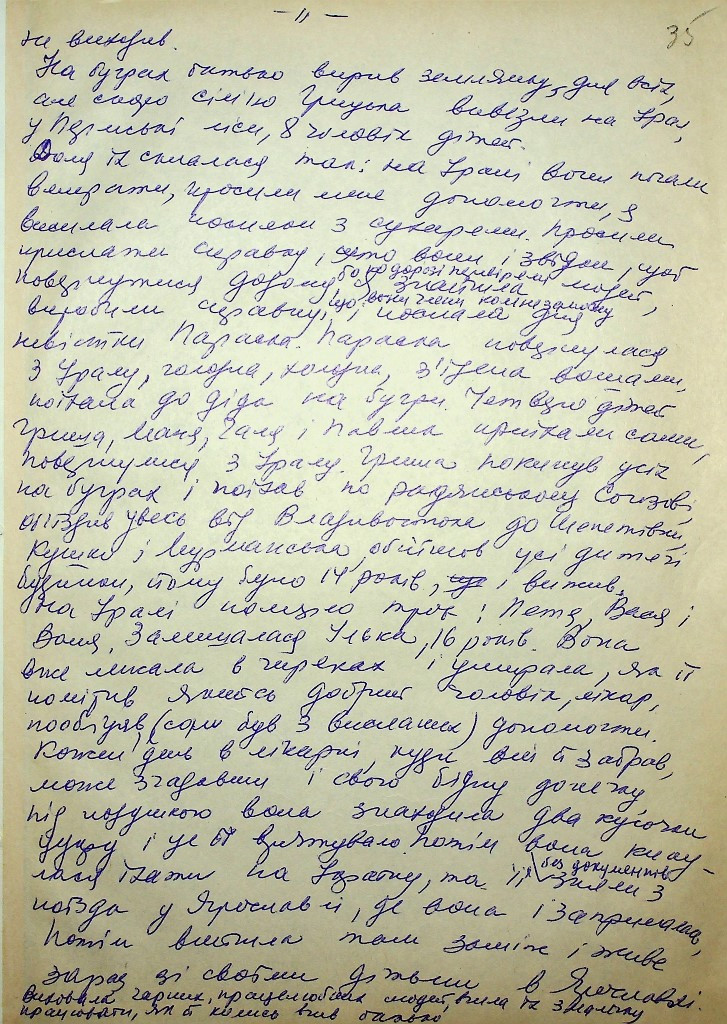 - 11 -
35
не виходив.
На буграх батько вирив землянку, для всіх,
але скоро сім'ю Грицька вивезли на Урал,
у Пермські ліси, 8 чоловік дітей.
Доля їх склалася так: на Уралі вони почали
вмирати, просили мене допомогти, я
висилала посилки з сухарями. Просили
прислати справку, хто вони і звідки, щоб
повернутися додому, бо по дорозі перевіряли. Я знайшла людей,
виробили справку, що вони члени комнезаможу і послали для
невістки Параски. Параска повернулася
з Уралу, голодна, холодна, з'їдена вошами,
поїхала до діда на бугри. Четверо дітей
Гриша, Маня, Галя і Павлик приїхали сами,
повернулися з Уралу. Гриша покинув усіх
на буграх і поїхав по радянському Союзові,
об'їздив увесь від Владивостока до Шепетівки,
Кушки і Мурманська, обійшов усі дитячі
будинки, йому було 14 років, і вижив.
На Уралі померло троє: Петя, Вася і
Воля. Залишалася Улька, 16 років. Вона
вже лежала в чиряках і умирала, як її
помітив якийсь добрий чоловік, лікар,
пообіцяв (сам був з висланих) допомогти.
Кожен день в лікарні, куди він її забрав,
може згадавши і свою бідну дочечку
під подушкою вона знаходила два кусочки
цукру і це її врятувало. Потім вона кину-
лася їхати на Україну, та її без документів зняли з
поїзда у Ярославлі, де вона і заприялась,
Потім вийшла там заміж і живе
зараз зі своїми дітьми в Ярославлі.
Виховала гарних, працелюбних людей, вчила їх змалечку
працювати, як її колись вчив батько.